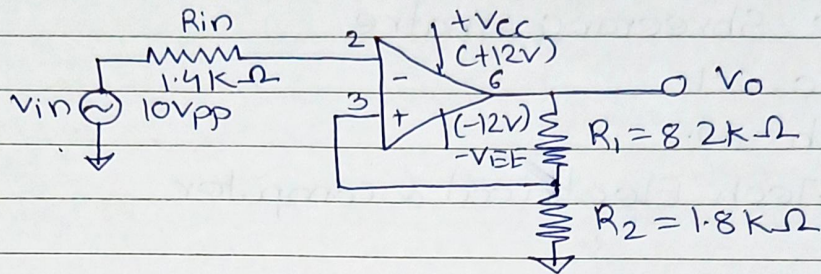 Rin
1.4KΩ
Vin
10Vpp
2
3
-
+
+Vcc
(+12V)
6
Vo
(-12V)
-VEE
R1 = 8.2kΩ
R2 = 1.8KΩ